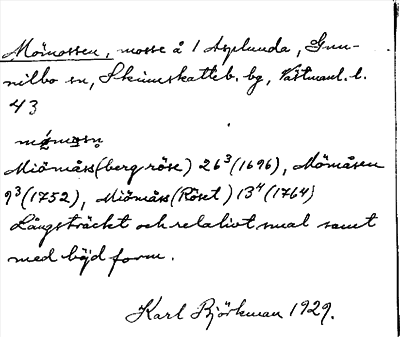 Mömossen, mosse å 1 Asplunda, Gun-
nilbo sn, Skinnskatteb. bg, Västmanl. l.
43
Miömåss (berg röse) 26³ (1696), Mömåsen
9³ (1752), Miömåss (Röset) 13⁴ (1764)
Långsträckt och relativt smal samt
med böjd form.
Karl Björkman 1929.